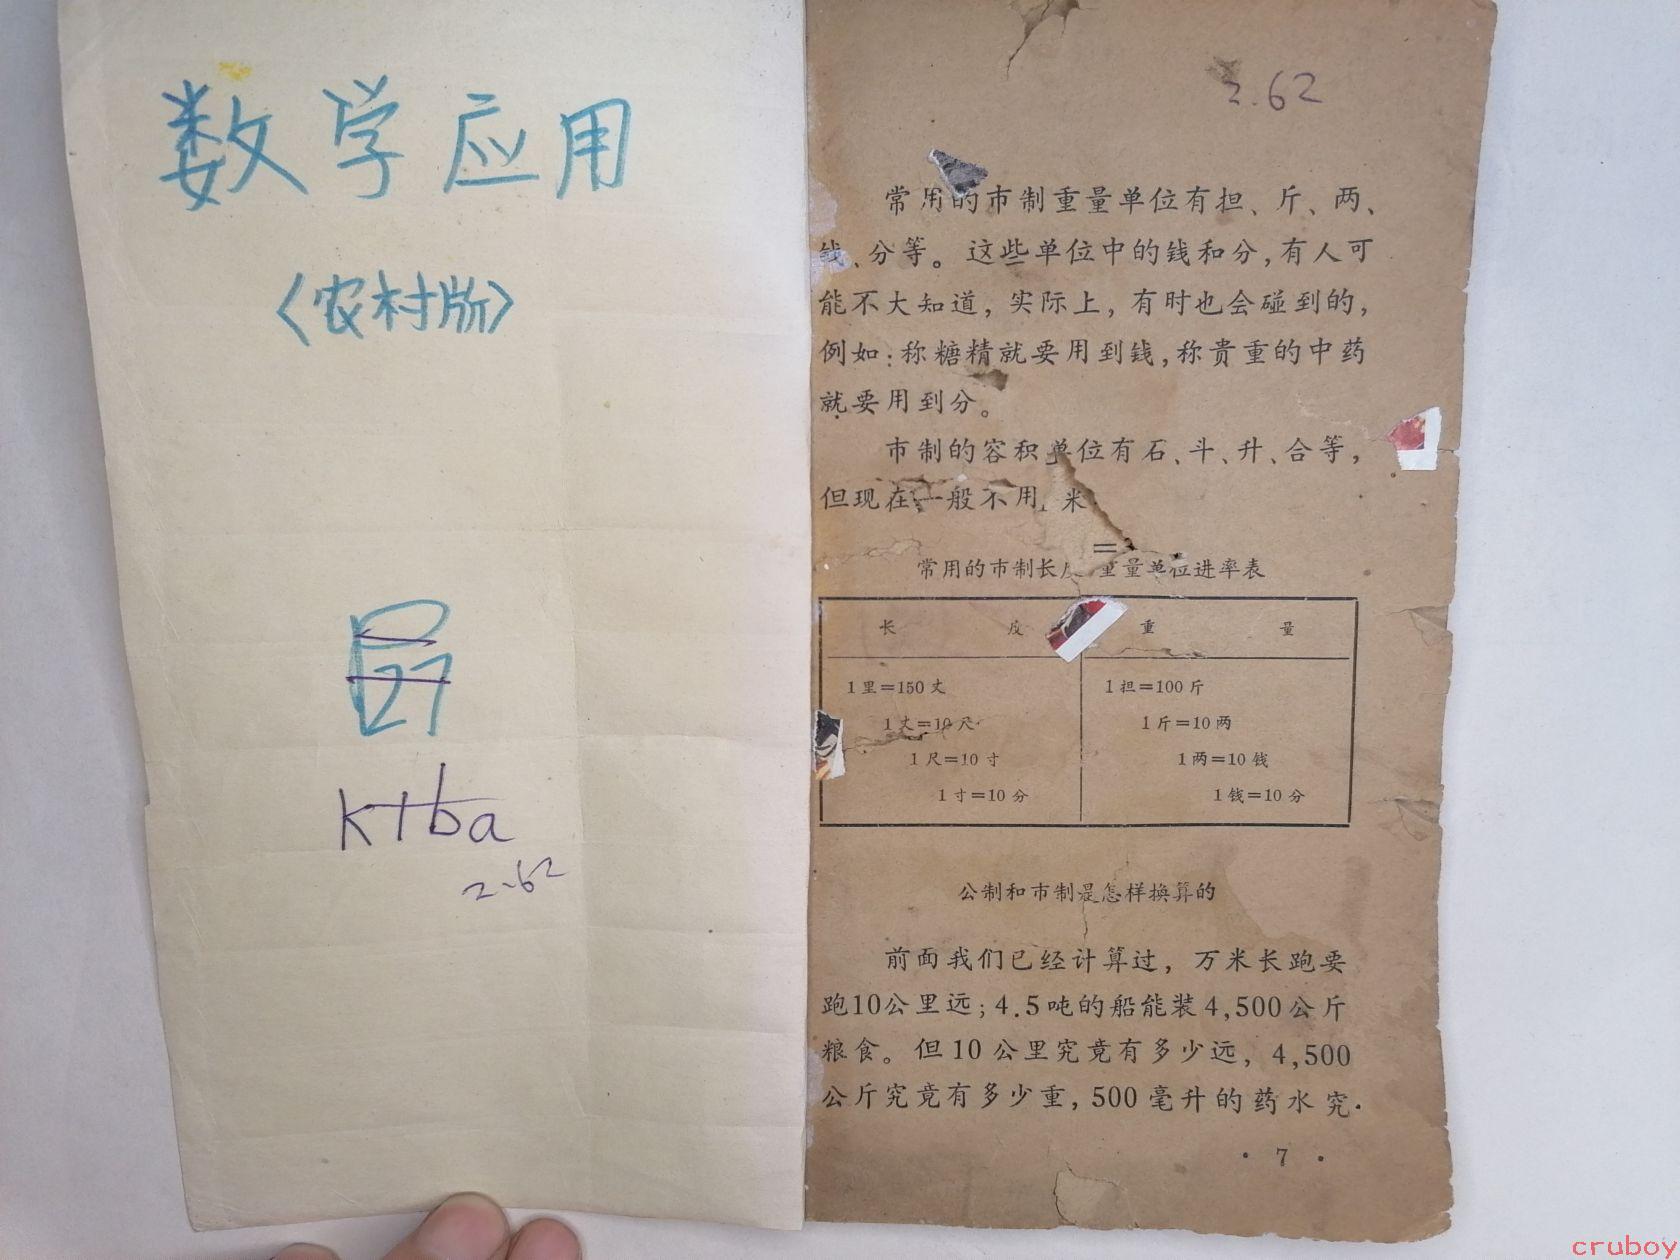 数学应用
〈农村版〉
27
ktba
2.62
2.62
常用的市制重量单位有担、斤、两、
钱、分等。这些单位中的钱和分,有人可
能不大知道,实际上,有时也会碰到的,
例如:称糖精就要用到钱,称贵重的中药
就要用到分。
市制的容积单位有石、斗、升、合等,
但现在一般不用 米
常用的市制长度 重量单位进率表
长度 重量
1里=150丈 1担=100斤
1丈=10尺 1斤=10两
1尺=10寸 1两=10钱
1寸=10分 1钱=10分
公制和市制是怎样换算的
前面我们已经计算过,万米长跑要
跑10公里远;4.5吨的船能装4,500公斤
粮食。但10公里究竟有多少远,4,500
公斤究竟有多少重,500毫升的药水究
· 7 ·
cruboy